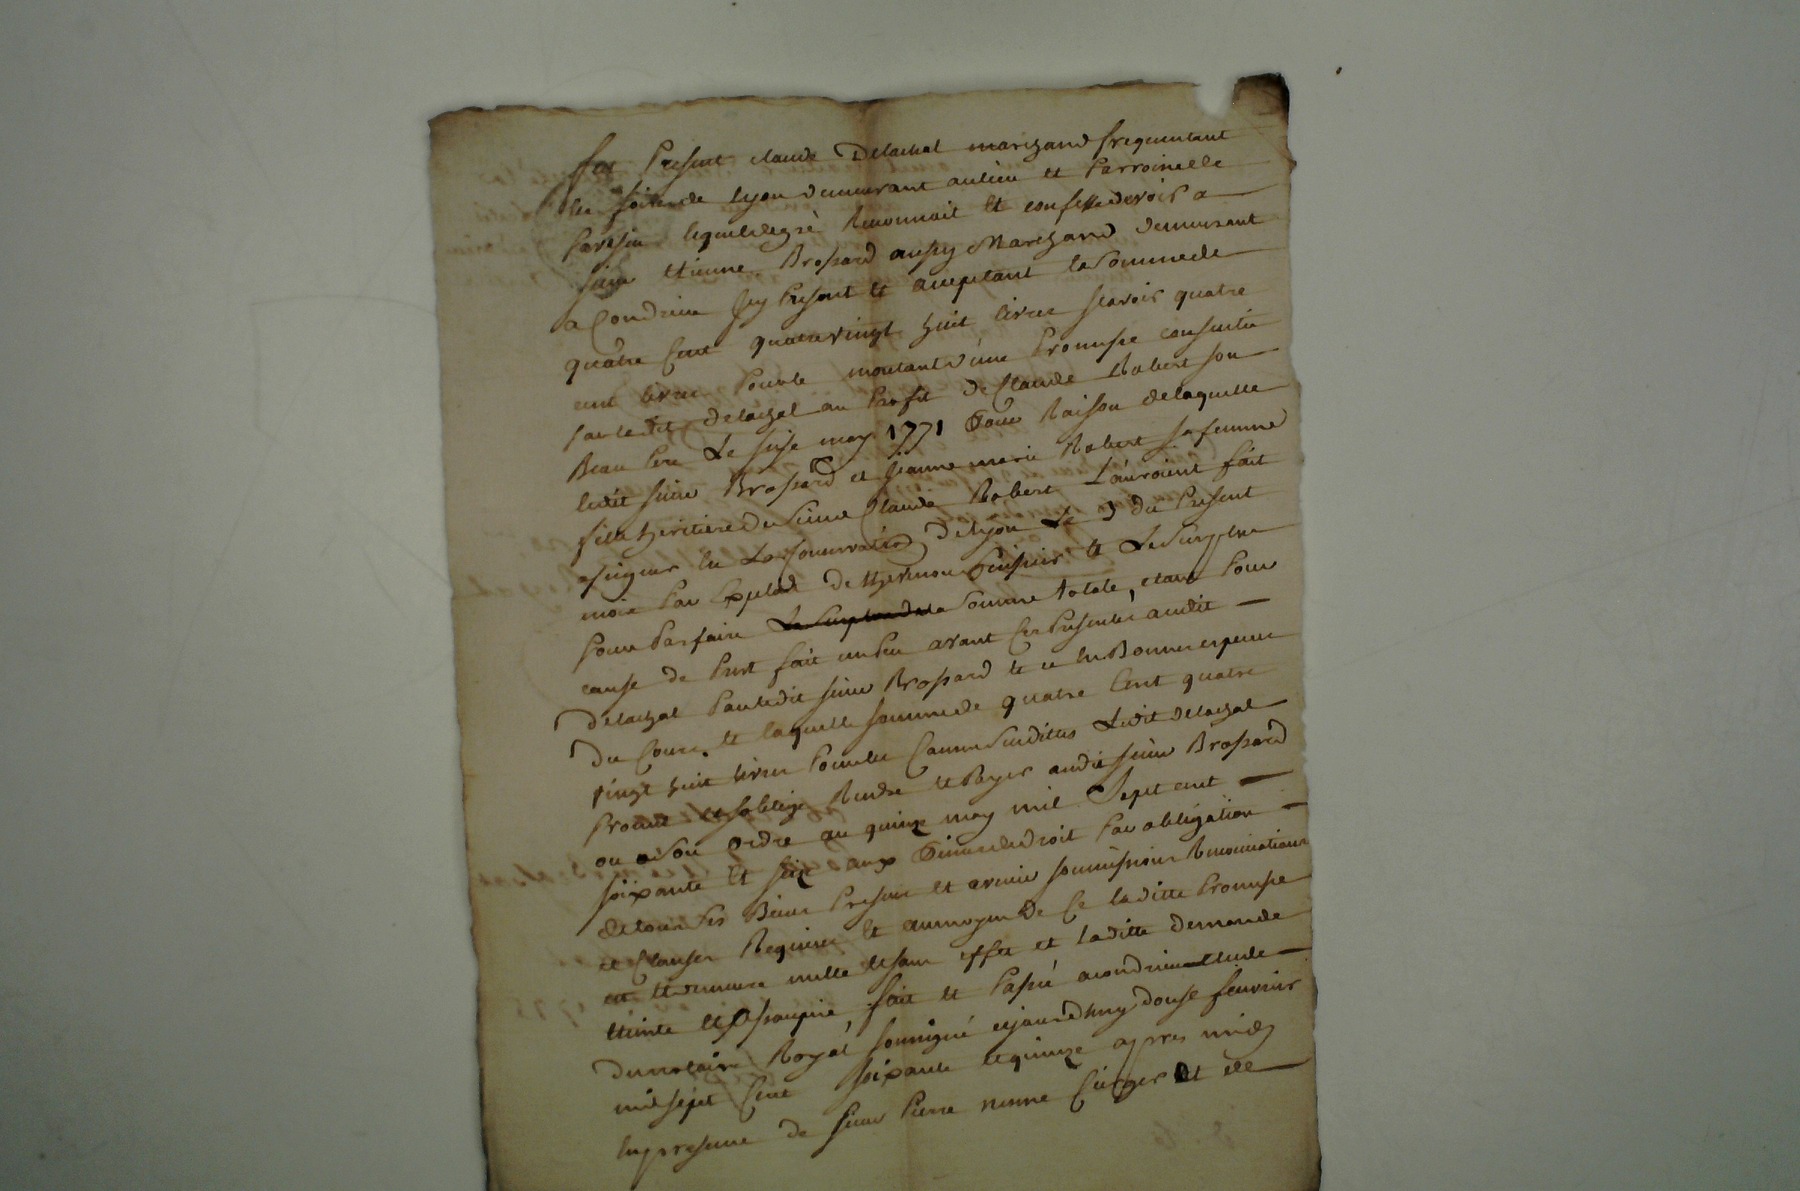 fut Present claude Delachal marchand frequentant
les foires de lyon demeurant au lieu et Parroisse de
lequel de gré Reconnait et confesse devoir a
sieur Etienne Brossard aussy Marchand demeurant
a Condrieu icy Present et acceptant la somme de
quatre Cent quatrevingt huit livres scavoir quatre
cent livres Pour le montant d'une Promesse consentie
Par ledit delachal au Profit de Claude Robert son
Beau Pere Le seise may 1771 Pour Raison de laquelle
ledit sieur Brossard et Jeanne marie Robert sa femme
fille heritiere du sieur Claude Robert L'auroient fait
assigner en La Conservation de lyon Le 9 du Present
mois Par Exploit de et Le surplus
Pour Parfaire Le surplus de la somme totale, etant Pour
cause de Prest fait un Peu avant ces Presentes audit
delachal Par ledit sieur Brossard et ce en Bonnes especes
du Cours, et laquelle somme de quatre Cent quatre
vingt huit livres Pour les Causes susdittes Ledit delachal
Promet et s'oblige Rendre et Payer audit sieur Brossard
ou a son ordre au quinze may mil Sept cent
soixante et seize aux Peines de droit Par obligation
de tous ses Biens Presens et avenir soumissions Renonciations
et Clauses Requises et aumoyen de Ce laditte Promesse
est et demeure nulle et sans effet et laditte demande
eteinte et assoupie, fait et Passé a condrieu etude
du notaire Royal soussigné cejourd'huy douse fevrier
mil sept Cent soixante et quinze apres midy
en presence de sieur Pierre et de